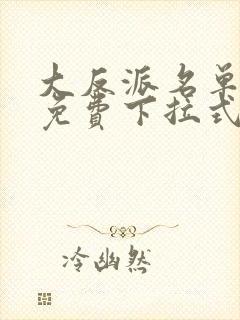 大反派名单
免費下拉式
冷幽然